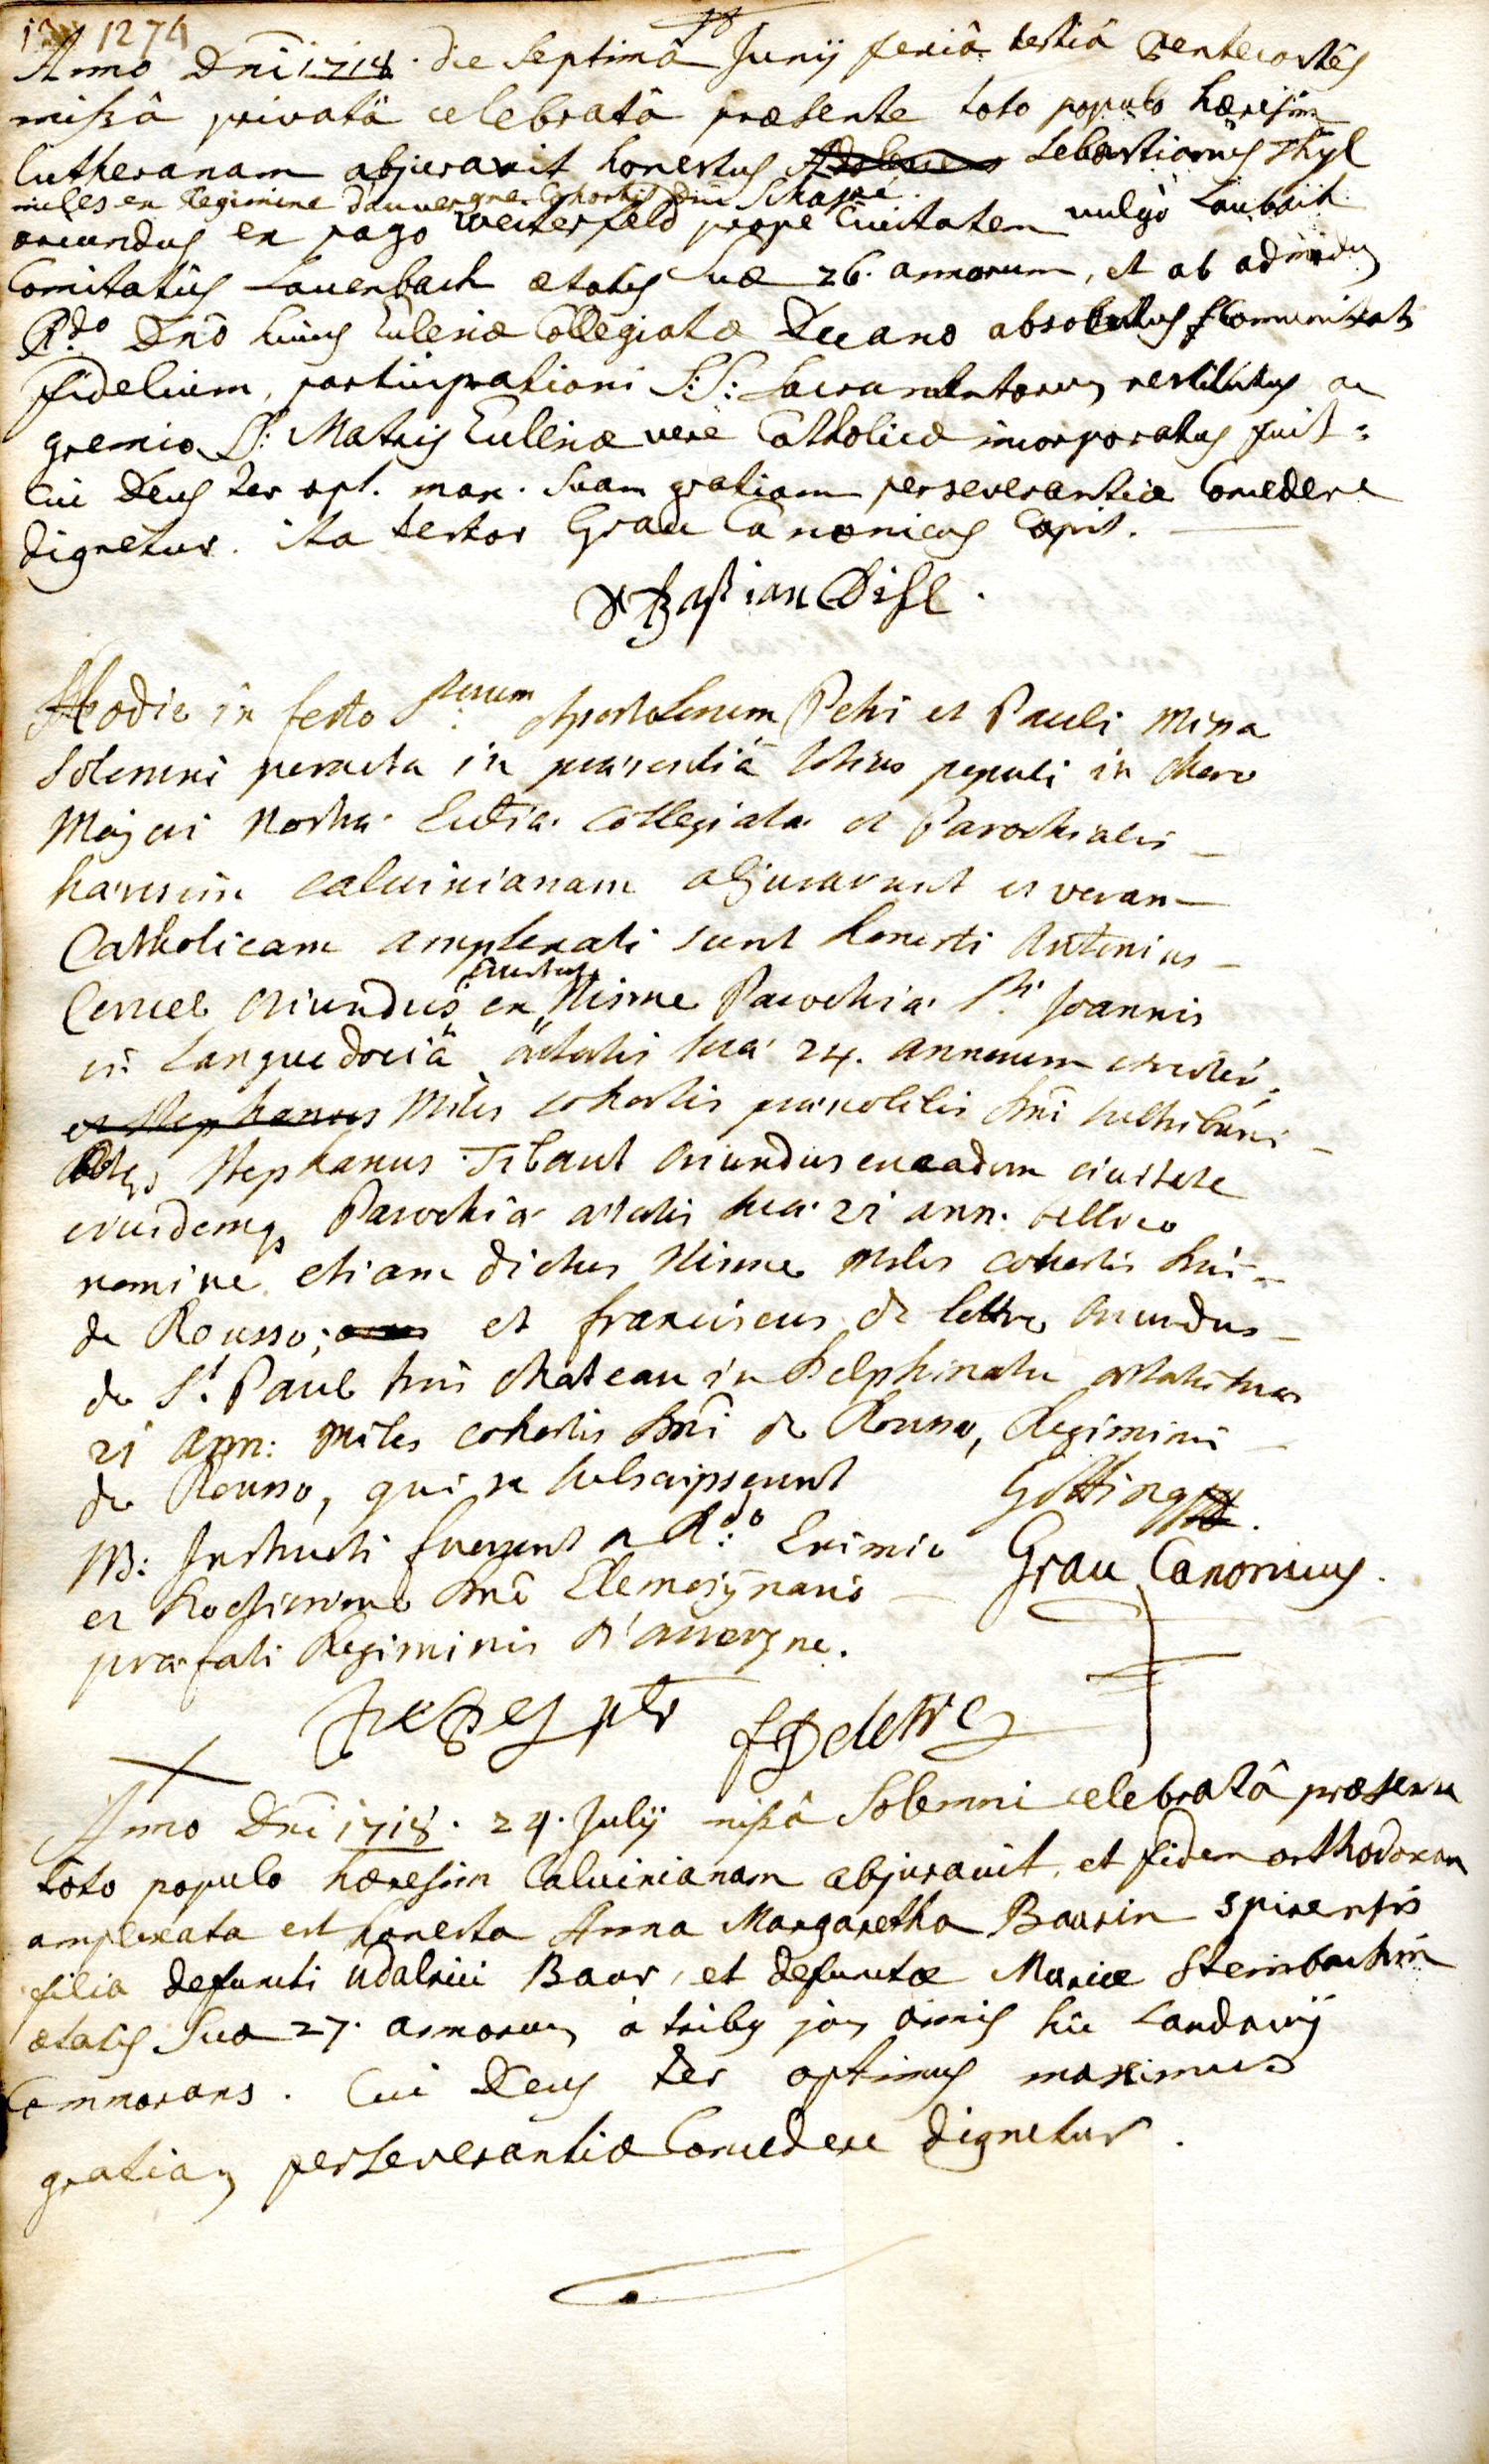 1274
Anno Dni 1718. die Septimâ Junij feriâ tertiâ Pentecostes
missâ privatâ celebratâ præsente toto populo hæresim
Lutheranam abjuravit honestus Sebastianus Thyl
miles ex Regimine d'auvergne Cohortis Dni
oriundus ex pago Weiterfeld prope Civitatem vulgò Laubach
Comitatûs Lauenbach ætatis suæ 26. annorum, et ab admodum
Rdo Dno huius Ecclesiæ Collegiatæ Decano absolutus Communitati
fidelium, participationi S:S: Sacramentorum restitutus ac
gremio S: Matris Ecclesiæ veré Catholicæ incorporatus fuit:
Cui Deus ter opt. max. suam gratiam perseverantiæ Concedere
dignetur. ita testor Grau Canonicus Capit.
Sebastian Disl.
Hodie in festo Storum Apostolorum Petri et Pauli Missa
Solemni peracta in præsentiâ totius populi in choro
Majori Nostræ Eccliæ Collegiatæ et Parochialis
hæresim calvinianam abjurarunt et veram
Catholicam amplexati sunt honesti Antonius
oriundus ex civitate Nisme Parochiæ Sti Joannis
in Languedociâ ætatis suæ 24. annorum
et Stephanus Miles cohortis prænobilis Dni
Stephanus Tibaut oriundus ex eadem civitate
ejusdemq Parochiæ ætatis suæ 21 ann. bellico
nomine etiam dictus Nisme Miles cohortis Dni
de Rousso; et franciscus de lettre oriundus
de St. Paul trois chateau in Delphinatu ætatis suæ
21 ann: Miles cohortis Dni de Rousso, Regiminis
de Rousso, qui se subscripserunt
Götting
NB: Instructi fuerunt a Rdo: Eximio Grau Canonicus.
et Doctissimo Dno Elemosynario
præfati Regiminis d'auvergne.
f Deletre
Anno Dni 1718. 24. Julij missâ Solemni celebratâ præsente
toto populo hæresim Calvinianam abjuravit, et fidem orthodoxam
amplexata est honesta Anna Margaretha Baurin Spirensis
filia defuncti Udalrici Baur, et defunctæ Mariæ Steinbachin
ætatis Suæ 27. annorum à tribus jam annis hîc Landavij
Commorans. Cui Deus ter optimus maximus
gratiam perseverantiæ Concedere dignetur.